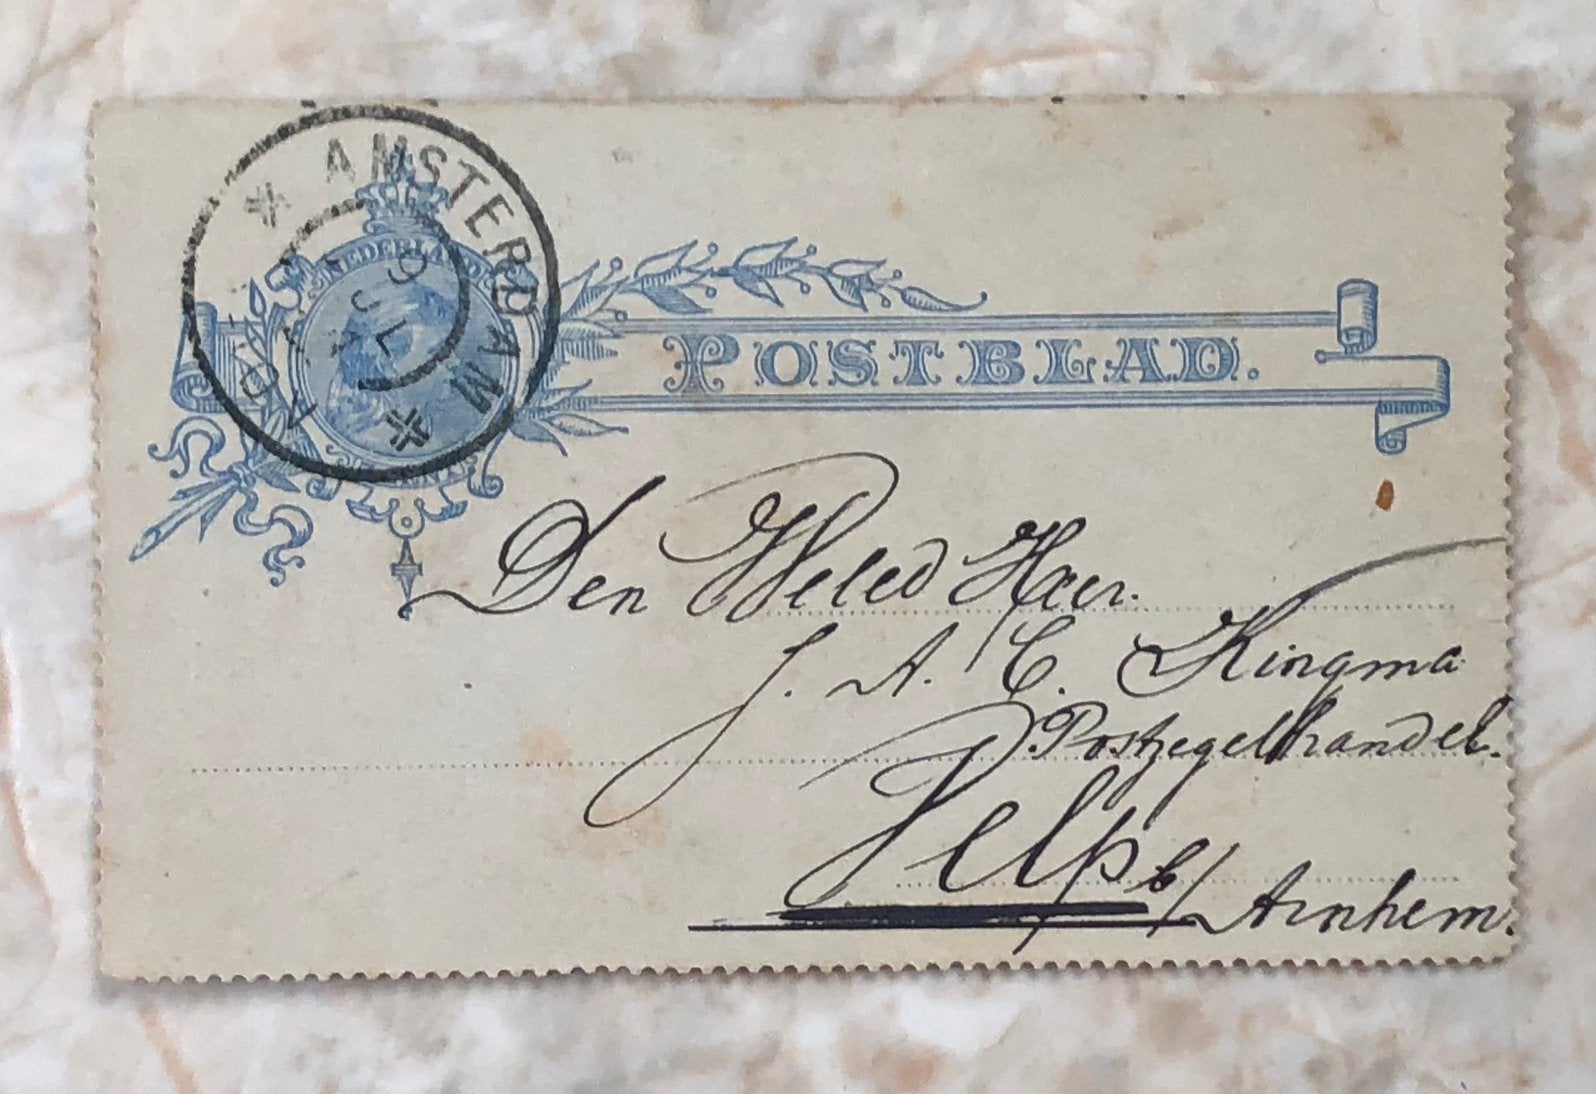 AMSTERDAM
NEDERLAND
POSTBLAD.
CENTS
Den Weled Heer.
J. A. C. Kingma
Postzegelhandel.
Velp b/Arnhem.